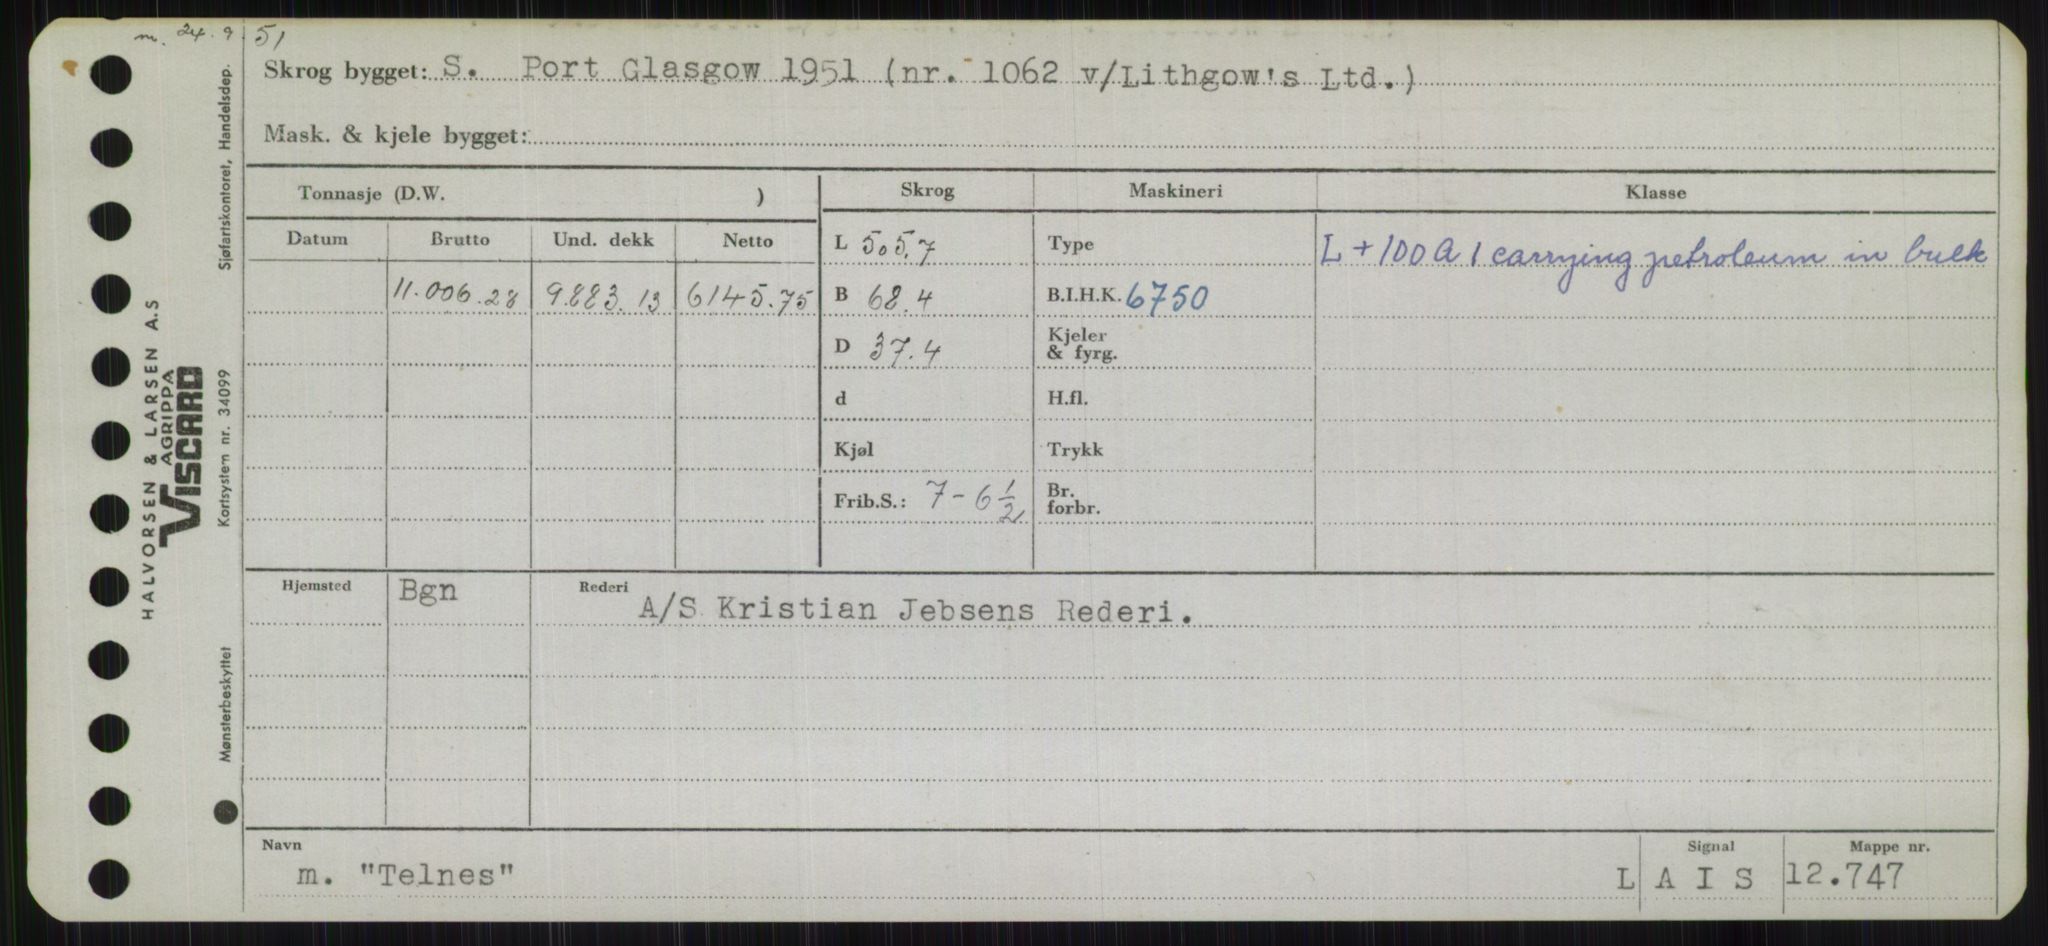 m. 24.9.51
Skrog bygget: S. Port Glasgow 1951 (nr. 1062 v/Lithgow's Ltd.)
Mask. & kjele bygget:
Tonnasje (D.W. ) Skrog Maskineri Klasse
Datum Brutto Und. dekk Netto L 505,7 Type L + 100 A 1 carrying petroleum in bulk
11.006.28 9.883.13 6145.75 B 68.4 B.I.H.K. 6750
D 37.4 Kjeler & fyrg.
d H.fl.
Kjøl Trykk
Frib.S.: 7-6 1/2 Br. forbr.
Hjemsted Bgn Rederi A/S Kristian Jebsens Rederi.
Navn Signal Mappe nr.
m. "Telnes" L A I S 12.747
HALVORSEN & LARSEN A.S
AGRIPPA
VISCARD
Mønsterbeskyttet Kortsystem nr. 34099 Sjøfartskontoret, Handelsdep.